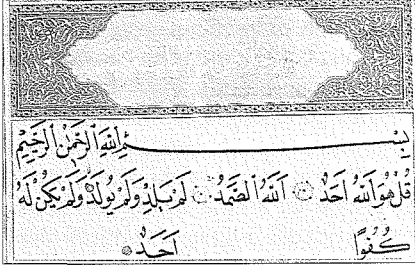 بِسْمِ اللهِ الرَّحْمٰنِ الرَّحِيْمِ
قُلْ هُوَ اللهُ اَحَدٌ ۞ اَللهُ الصَّمَدُ ۞ لَمْ يَلِدْ وَلَمْ يُولَدْ وَلَمْ يَكُنْ لَهُ
كُفُوًا اَحَدٌ ۞